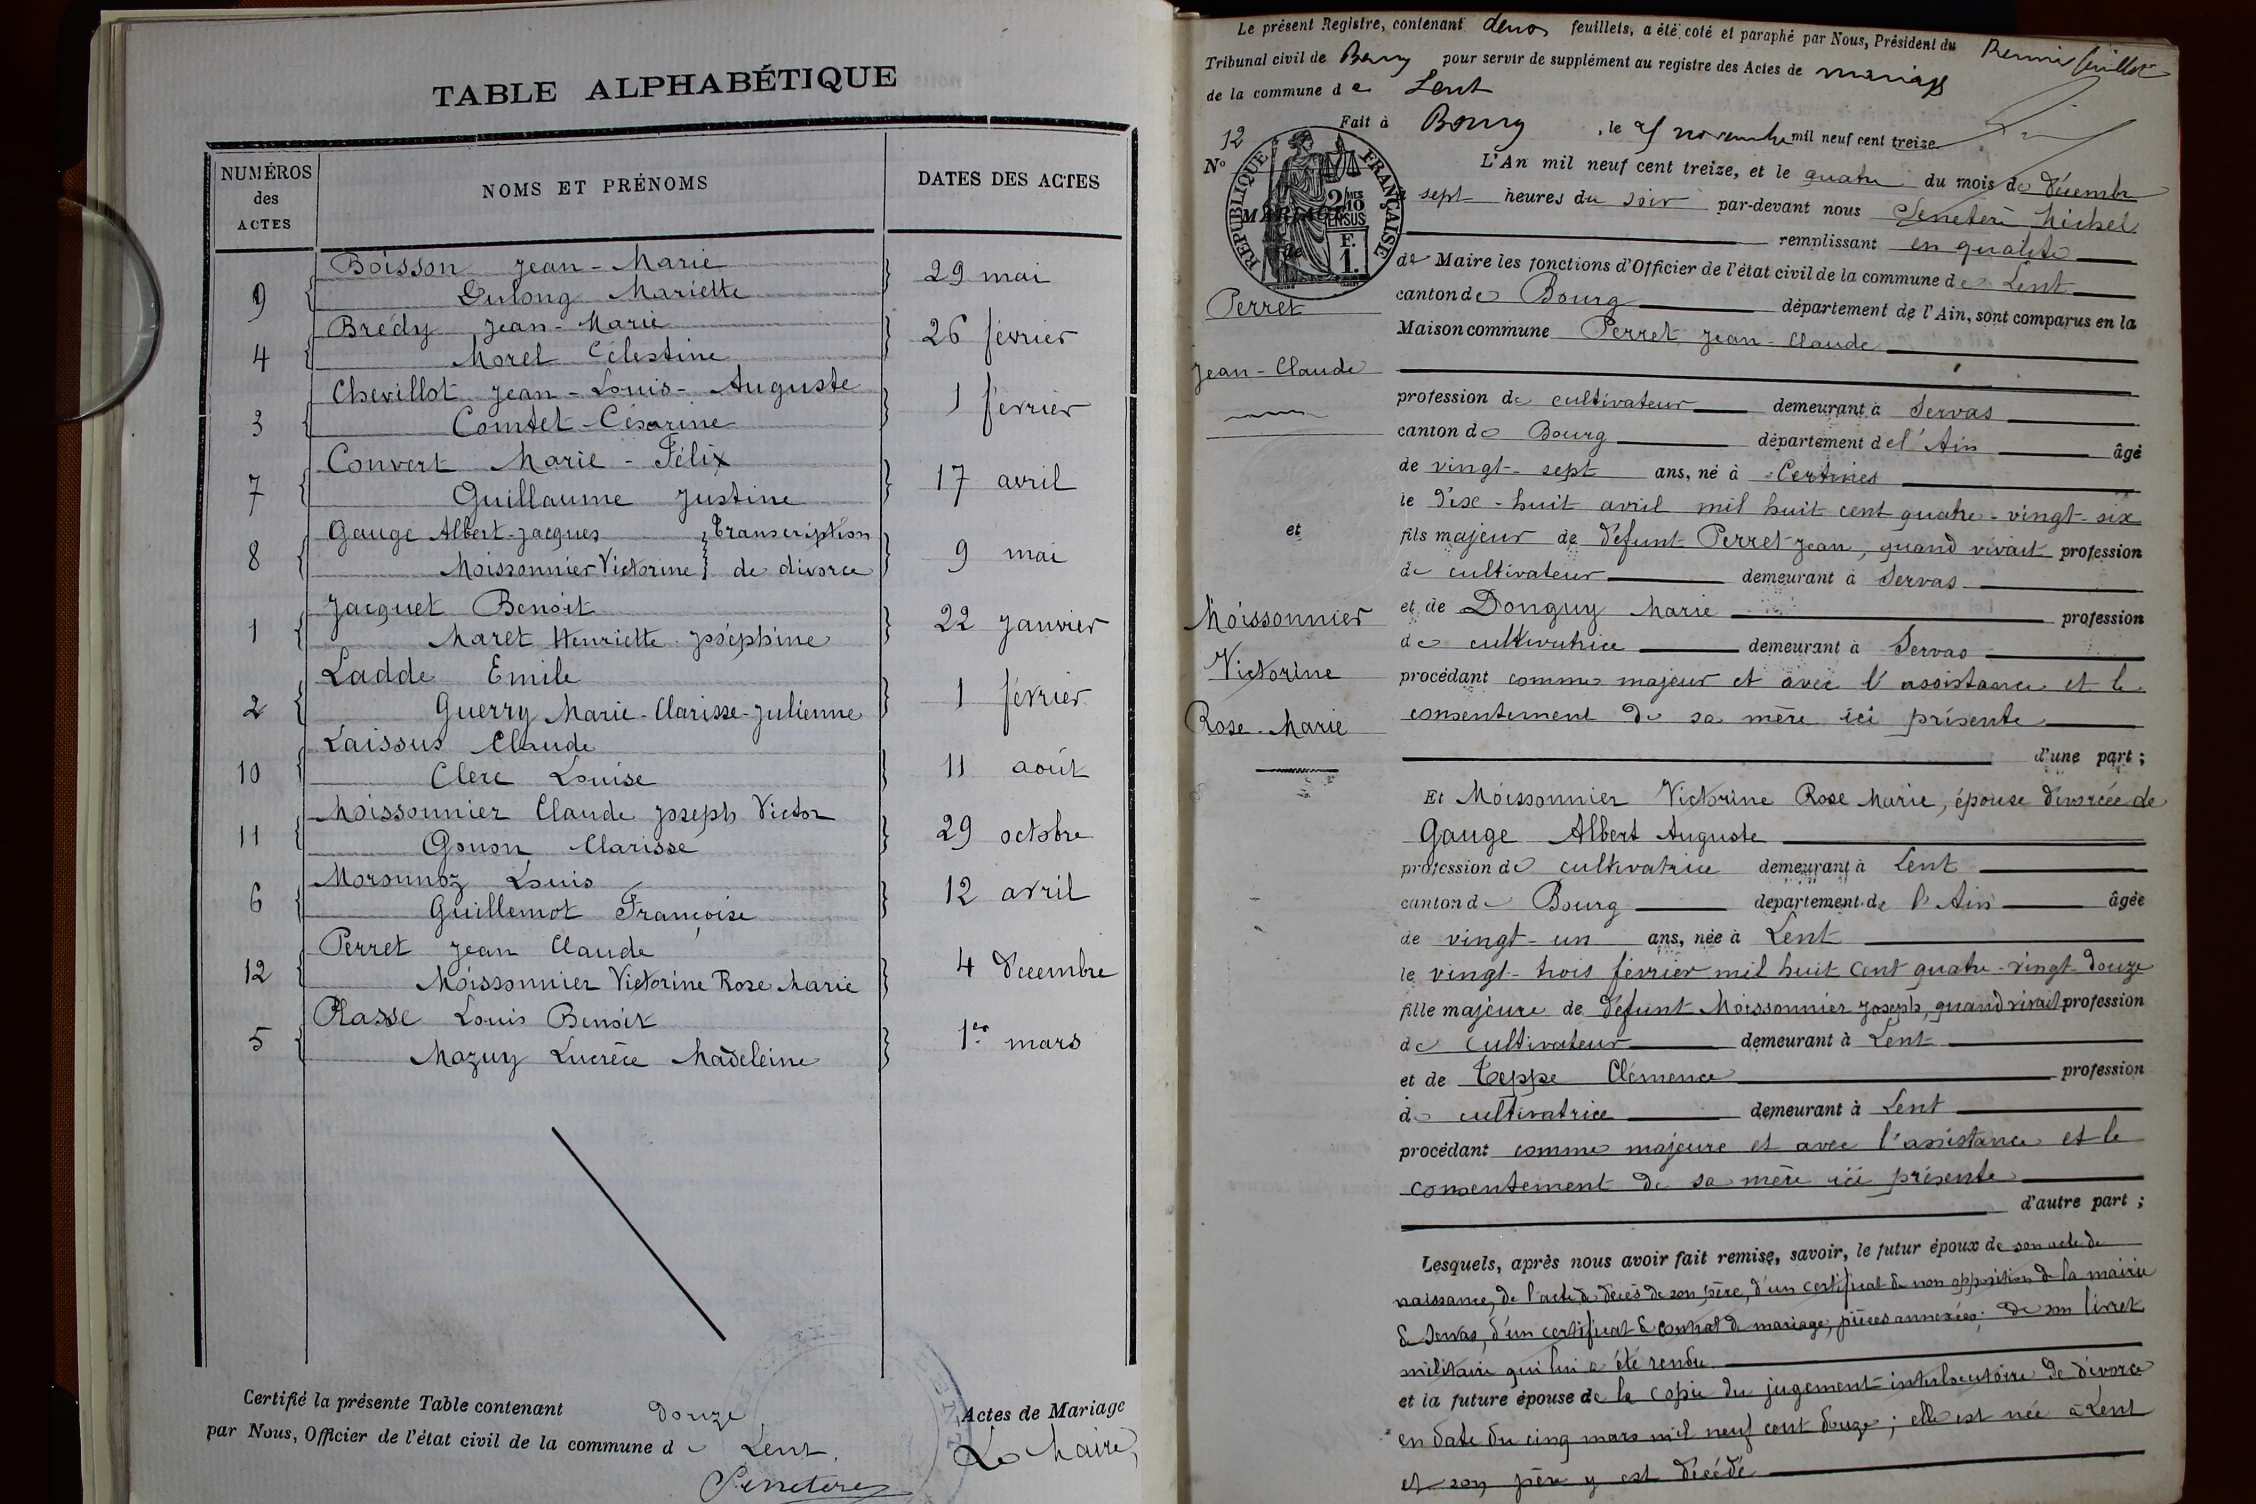 TABLE ALPHABÉTIQUE
NUMÉROS des ACTES
NOMS ET PRÉNOMS
DATES DES ACTES
9 Boisson Jean-Marie
Dulong Mariette
29 mai
4 Brédy Jean-Marie
Morel Célestine
26 février
3 Chevillot Jean-Louis-Auguste
Comtet Césarine
1 février
7 Convert Marie-Félix
Guillaume Justine
17 avril
8 Gauge Albert-Jacques } Transcription
Moissonnier Victorine } de divorce
9 mai
1 Jacquet Benoît
Maret Henriette Joséphine
22 janvier
2 Ladde Emile
Guerry Marie-Clarisse-Julienne
1 février
10 Laissus Claude
Clerc Louise
11 août
11 Moissonnier Claude Joseph Victor
Gonon Clarisse
29 octobre
6 Moronnoz Louis
Guillemot Françoise
12 avril
12 Perret Jean Claude
Moissonnier Victorine Rose Marie
4 Décembre
5 Plasse Louis Benoît
Mazuy Lucrèce Madeleine
1er mars
Certifié la présente Table contenant douze Actes de Mariage
par Nous, Officier de l'état civil de la commune de Lent.
Le Maire,
Le présent Registre, contenant deux feuillets, a été coté et paraphé par Nous, Président du
Tribunal civil de Bourg pour servir de supplément au registre des Actes de mariage
de la commune de Lent
Fait à Bourg, le novembre mil neuf cent treize
N° 12
MARIAGE
de
RÉPUBLIQUE FRANÇAISE
2/10MES EN SUS
F. 1.
Perret
Jean-Claude
et
Moissonnier
Victorine
Rose-Marie
L'An mil neuf cent treize, et le quatre du mois de Décembre
sept heures du soir par-devant nous Senetère Michel
remplissant en qualité
de Maire les fonctions d'Officier de l'état civil de la commune de Lent
canton de Bourg département de l'Ain, sont comparus en la
Maison commune Perret Jean-Claude
profession de cultivateur demeurant à Servas
canton de Bourg département de l'Ain âgé
de vingt-sept ans, né à Certines
le dix-huit avril mil huit cent quatre-vingt-six
fils majeur de défunt Perret Jean, quand vivait profession
de cultivateur demeurant à Servas
et de Donguy Marie profession
de cultivatrice demeurant à Servas
procédant comme majeur et avec l'assistance et le
consentement de sa mère ici présente
d'une part ;
Et Moissonnier Victorine Rose Marie, épouse divorcée de
Gauge Albert Auguste
profession de cultivatrice demeurant à Lent
canton de Bourg département de l'Ain âgée
de vingt-un ans, née à Lent
le vingt-trois février mil huit cent quatre-vingt-douze
fille majeure de défunt Moissonnier Joseph, quand vivait profession
de cultivateur demeurant à Lent
et de Teppe Clémence profession
de cultivatrice demeurant à Lent
procédant comme majeure et avec l'assistance et le
consentement de sa mère ici présente
d'autre part ;
Lesquels, après nous avoir fait remise, savoir, le futur époux de son acte de
naissance, de l'acte de décès de son père, d'un certificat de non opposition de la mairie
de Servas, d'un certificat de contrat de mariage, pièces annexées ; de son livret
militaire qui lui a été rendu
et la future épouse de la copie du jugement interlocutoire de divorce
en date du cinq mars mil neuf cent douze ; elle est née à Lent
et son père y est décédé